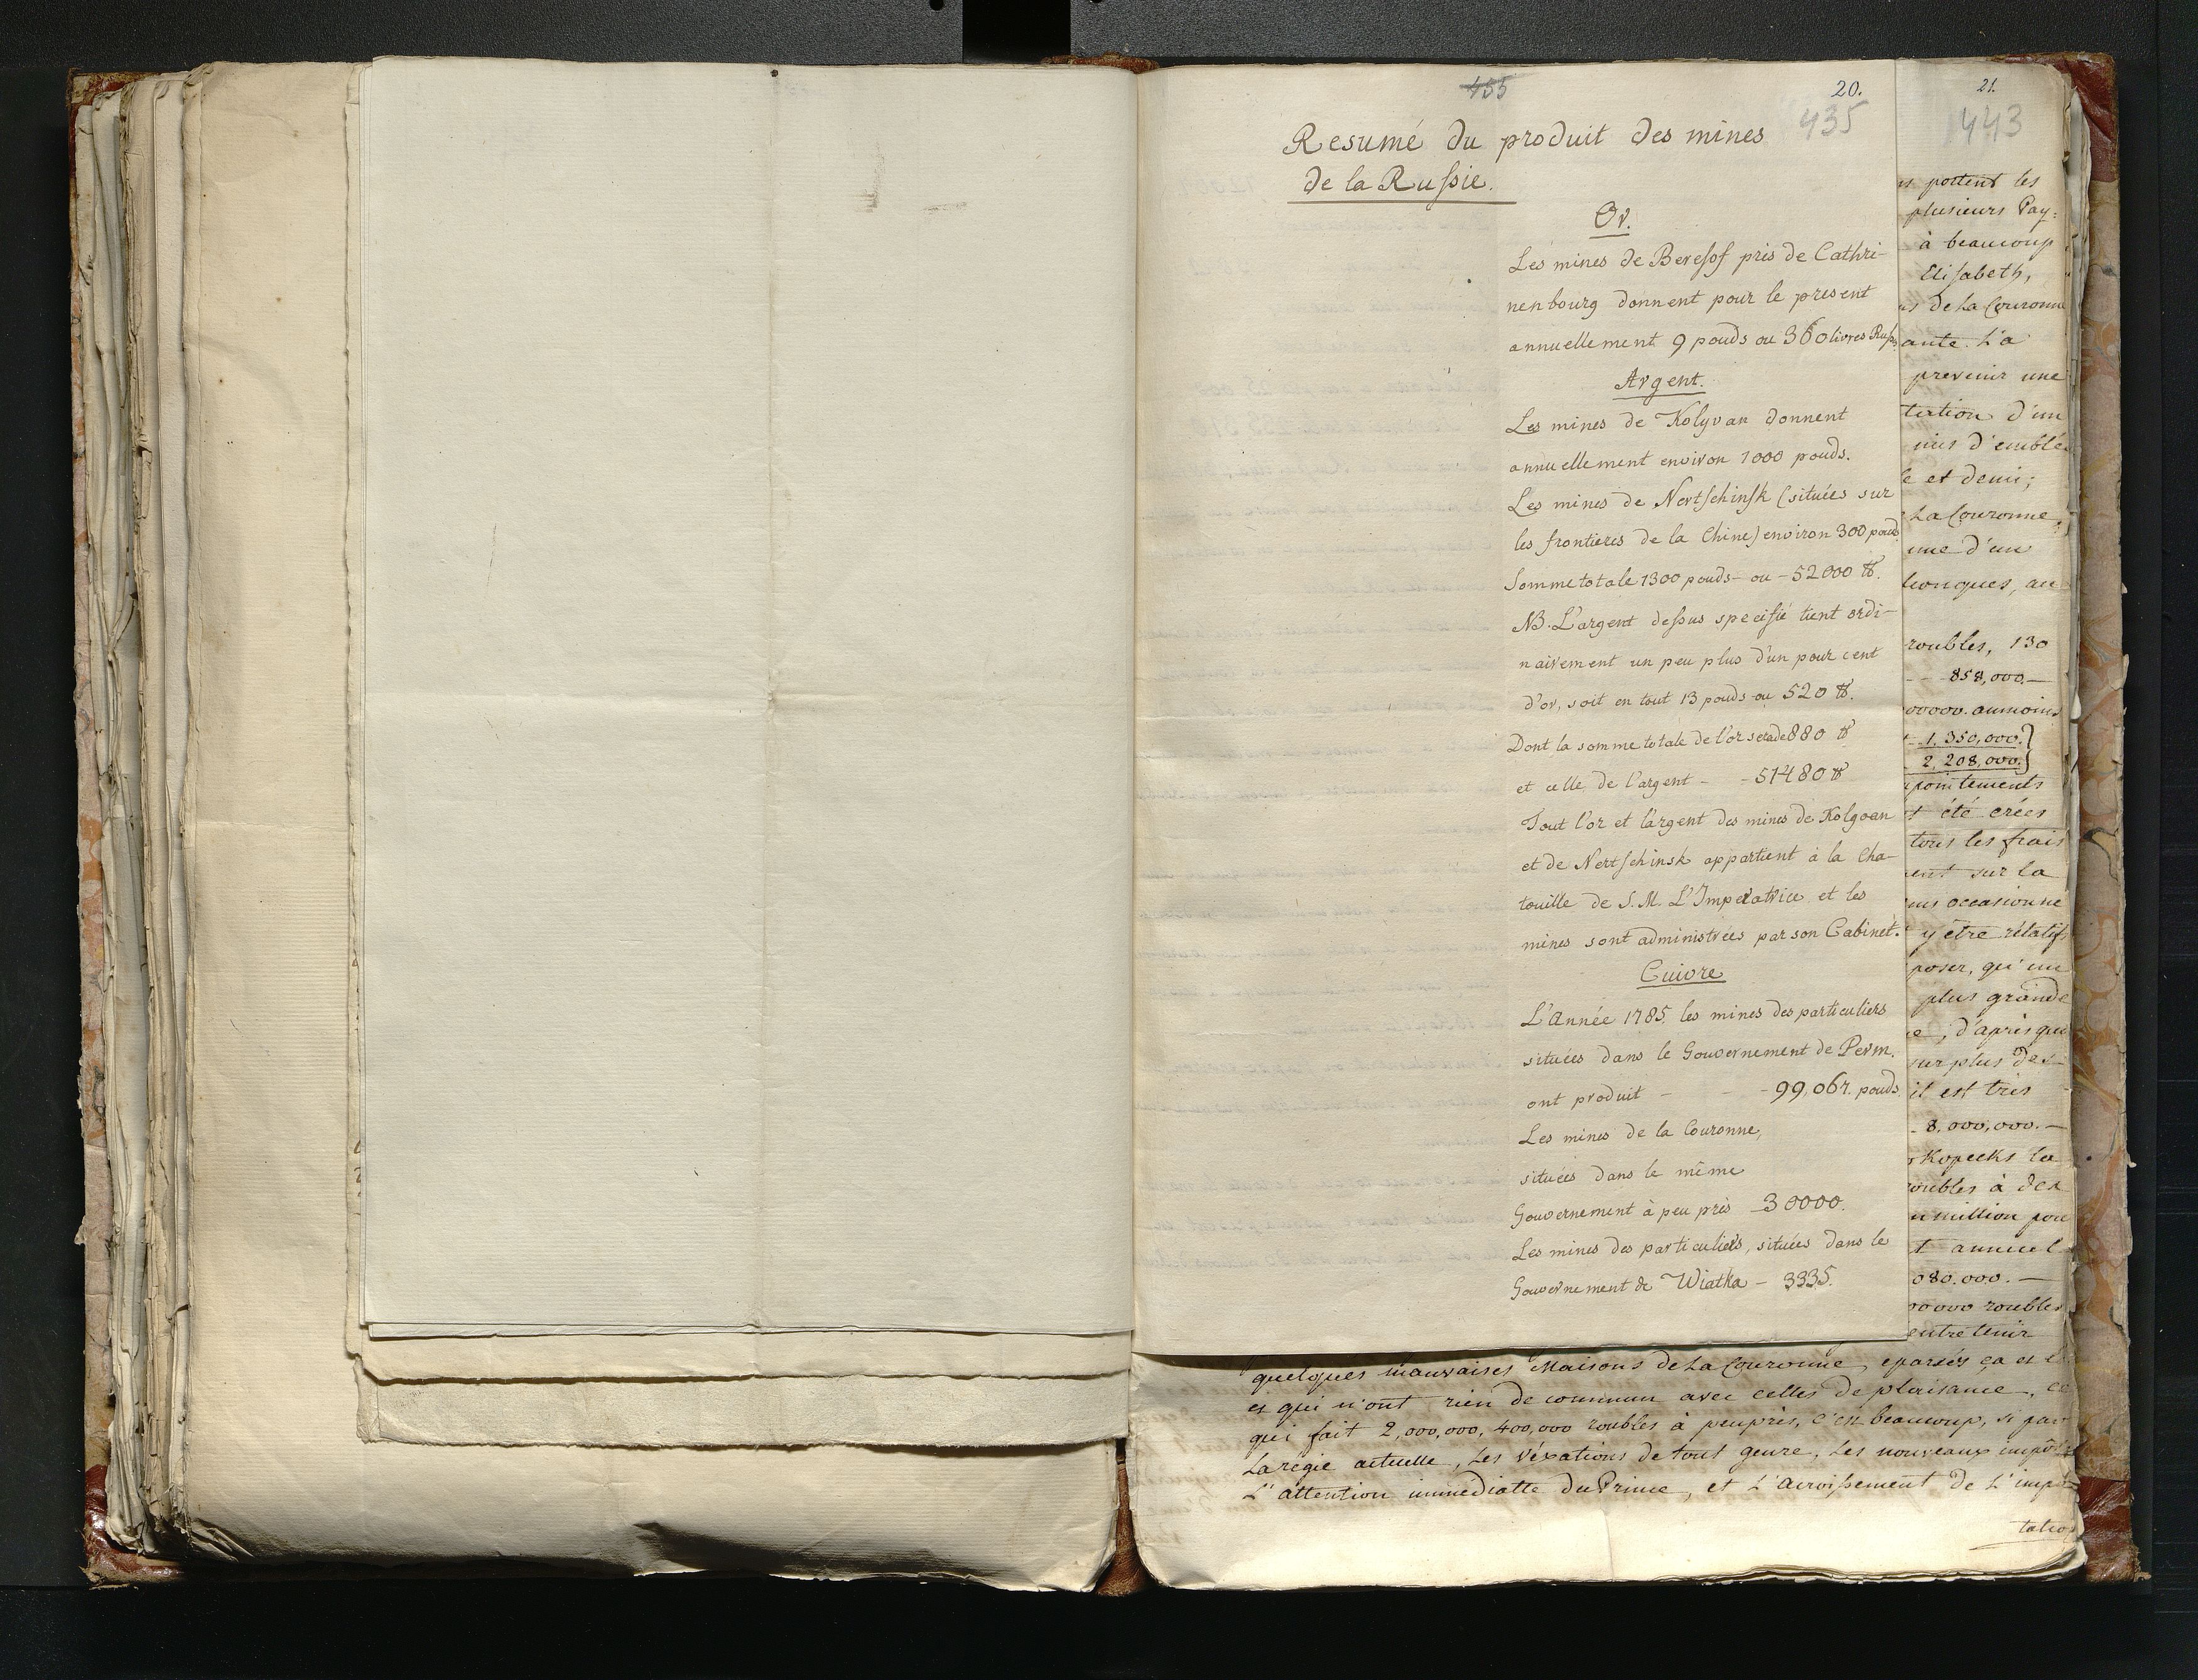 455
20.
435
Resumé du produit des mines
de la Russie.
Or.
Les mines de Beresof près de Cathri-
nenbourg donnent pour le present
annuellement 9 pouds ou 360 livres Russ.
Argent.
Les mines de Kolyvan donnent
annuellement environ 1000 pouds.
Les mines de Nertschinsk (situées sur
les frontieres de la Chine) environ 300 pouds
Somme totale 1300 pouds - ou - 52000 ℔.
NB. L'argent dessus specifié tient ordi-
nairement un peu plus d'un pour cent
d'or, soit en tout 13 pouds ou 520 ℔.
Dont la somme totale de l'or sera de 880 ℔
et celle de l'argent - - 51480 ℔
Tout l'or et l'argent des mines de Kolyvan
et de Nertschinsk appartient à la Cha-
touille de S. M. L'Imperatrice et les
mines sont administrées par son Cabinet.
Cuivre
L'Année 1785 les mines des particuliers
situées dans le Gouvernement de Perm.
ont produit - - - 99,067. pouds
Les mines de la Couronne,
situées dans le même
Gouvernement à peu près - 30000.
Les mines des particuliers, situées dans le
Gouvernement de Wiatka - 3335.
21.
443
portent les
plusieurs Pay=
à beaucoup
Elisabeth,
de La Couronne
ante. La
prevenir une
tation d'un
d'emblé
et demi;
La Couronne,
une d'un
conques, au
roubles, 130
- - 858,000.-
00000. aumoins
1,350,000.}
2,208,000.}
pointements
été crées
tous les frais
ent sur la
occasionne
y être rélatifs
poser, qu'un
plus grande
, d'après que
surplus des
il est très
- 8,000,000. -
Kopecks la
roubles à des
million pou
annuel
080.000. -
00000 roubles
entretenir
quelques mauvaises Maisons de La Couronne, eparses ça et l
es qui n'ont rien de commun avec celles de plaisance, ce
qui fait 2,000,000, 400,000 roubles à peuprès, c'est beaucoup, si par
La régie actuelle, Les véxations de tout genre, Les nouveaux impôts
L'attention immédiatte du Prince, et L'acroissement de L'impo=
tatio